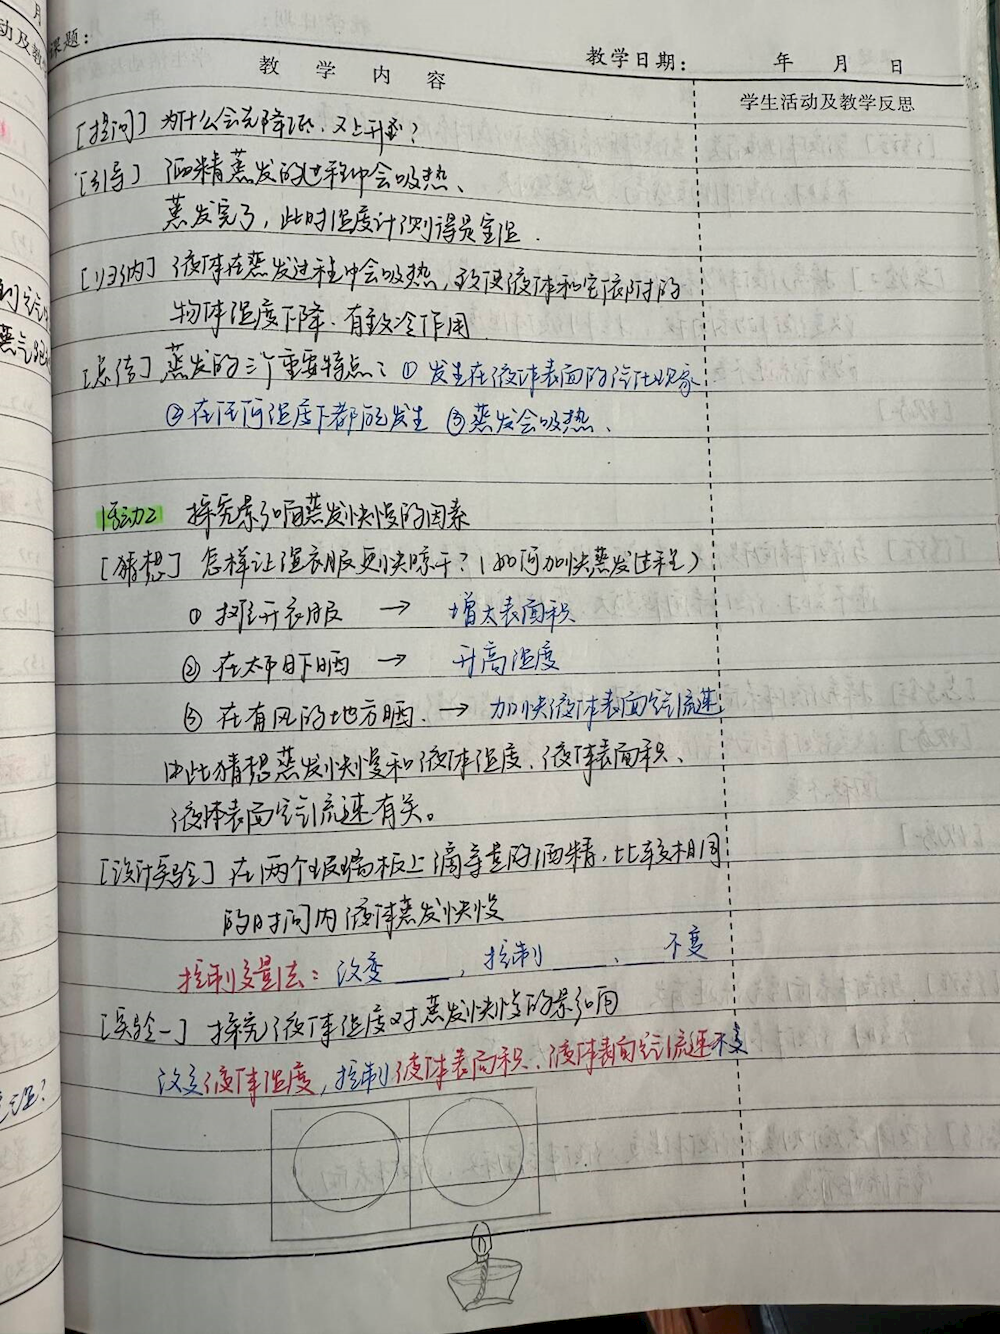 课题:
教学日期: 年 月 日
教 学 内 容
学生活动及教学反思
[提问] 为什么会先降温,又上升到?
[引导] 酒精蒸发的过程中会吸热、
蒸发完了,此时温度计测得是室温.
[归纳] 液体在蒸发过程中会吸热,致使液体和它依附的
物体温度下降.有致冷作用
[总结] 蒸发的三个重要特点:① 发生在液体表面的汽化现象
②在任何温度下都能发生 ③蒸发会吸热、
活动2 探究影响蒸发快慢的因素
[猜想] 怎样让湿衣服更快晾干?(如何加快蒸发过程)
① 摊开衣服 → 增大表面积
② 在太阳下晒 → 升高温度
③ 在有风的地方晒. → 加快液体表面空气流速
由此猜想蒸发快慢和液体温度、液体表面积、
液体表面空气流速有关。
[设计实验] 在两个玻璃板上滴等量的酒精,比较相同
的时间内液体蒸发快慢
控制变量法:改变____,控制____、____不变
[实验一] 探究液体温度对蒸发快慢的影响
改变液体温度,控制液体表面积、液体表面空气流速不变